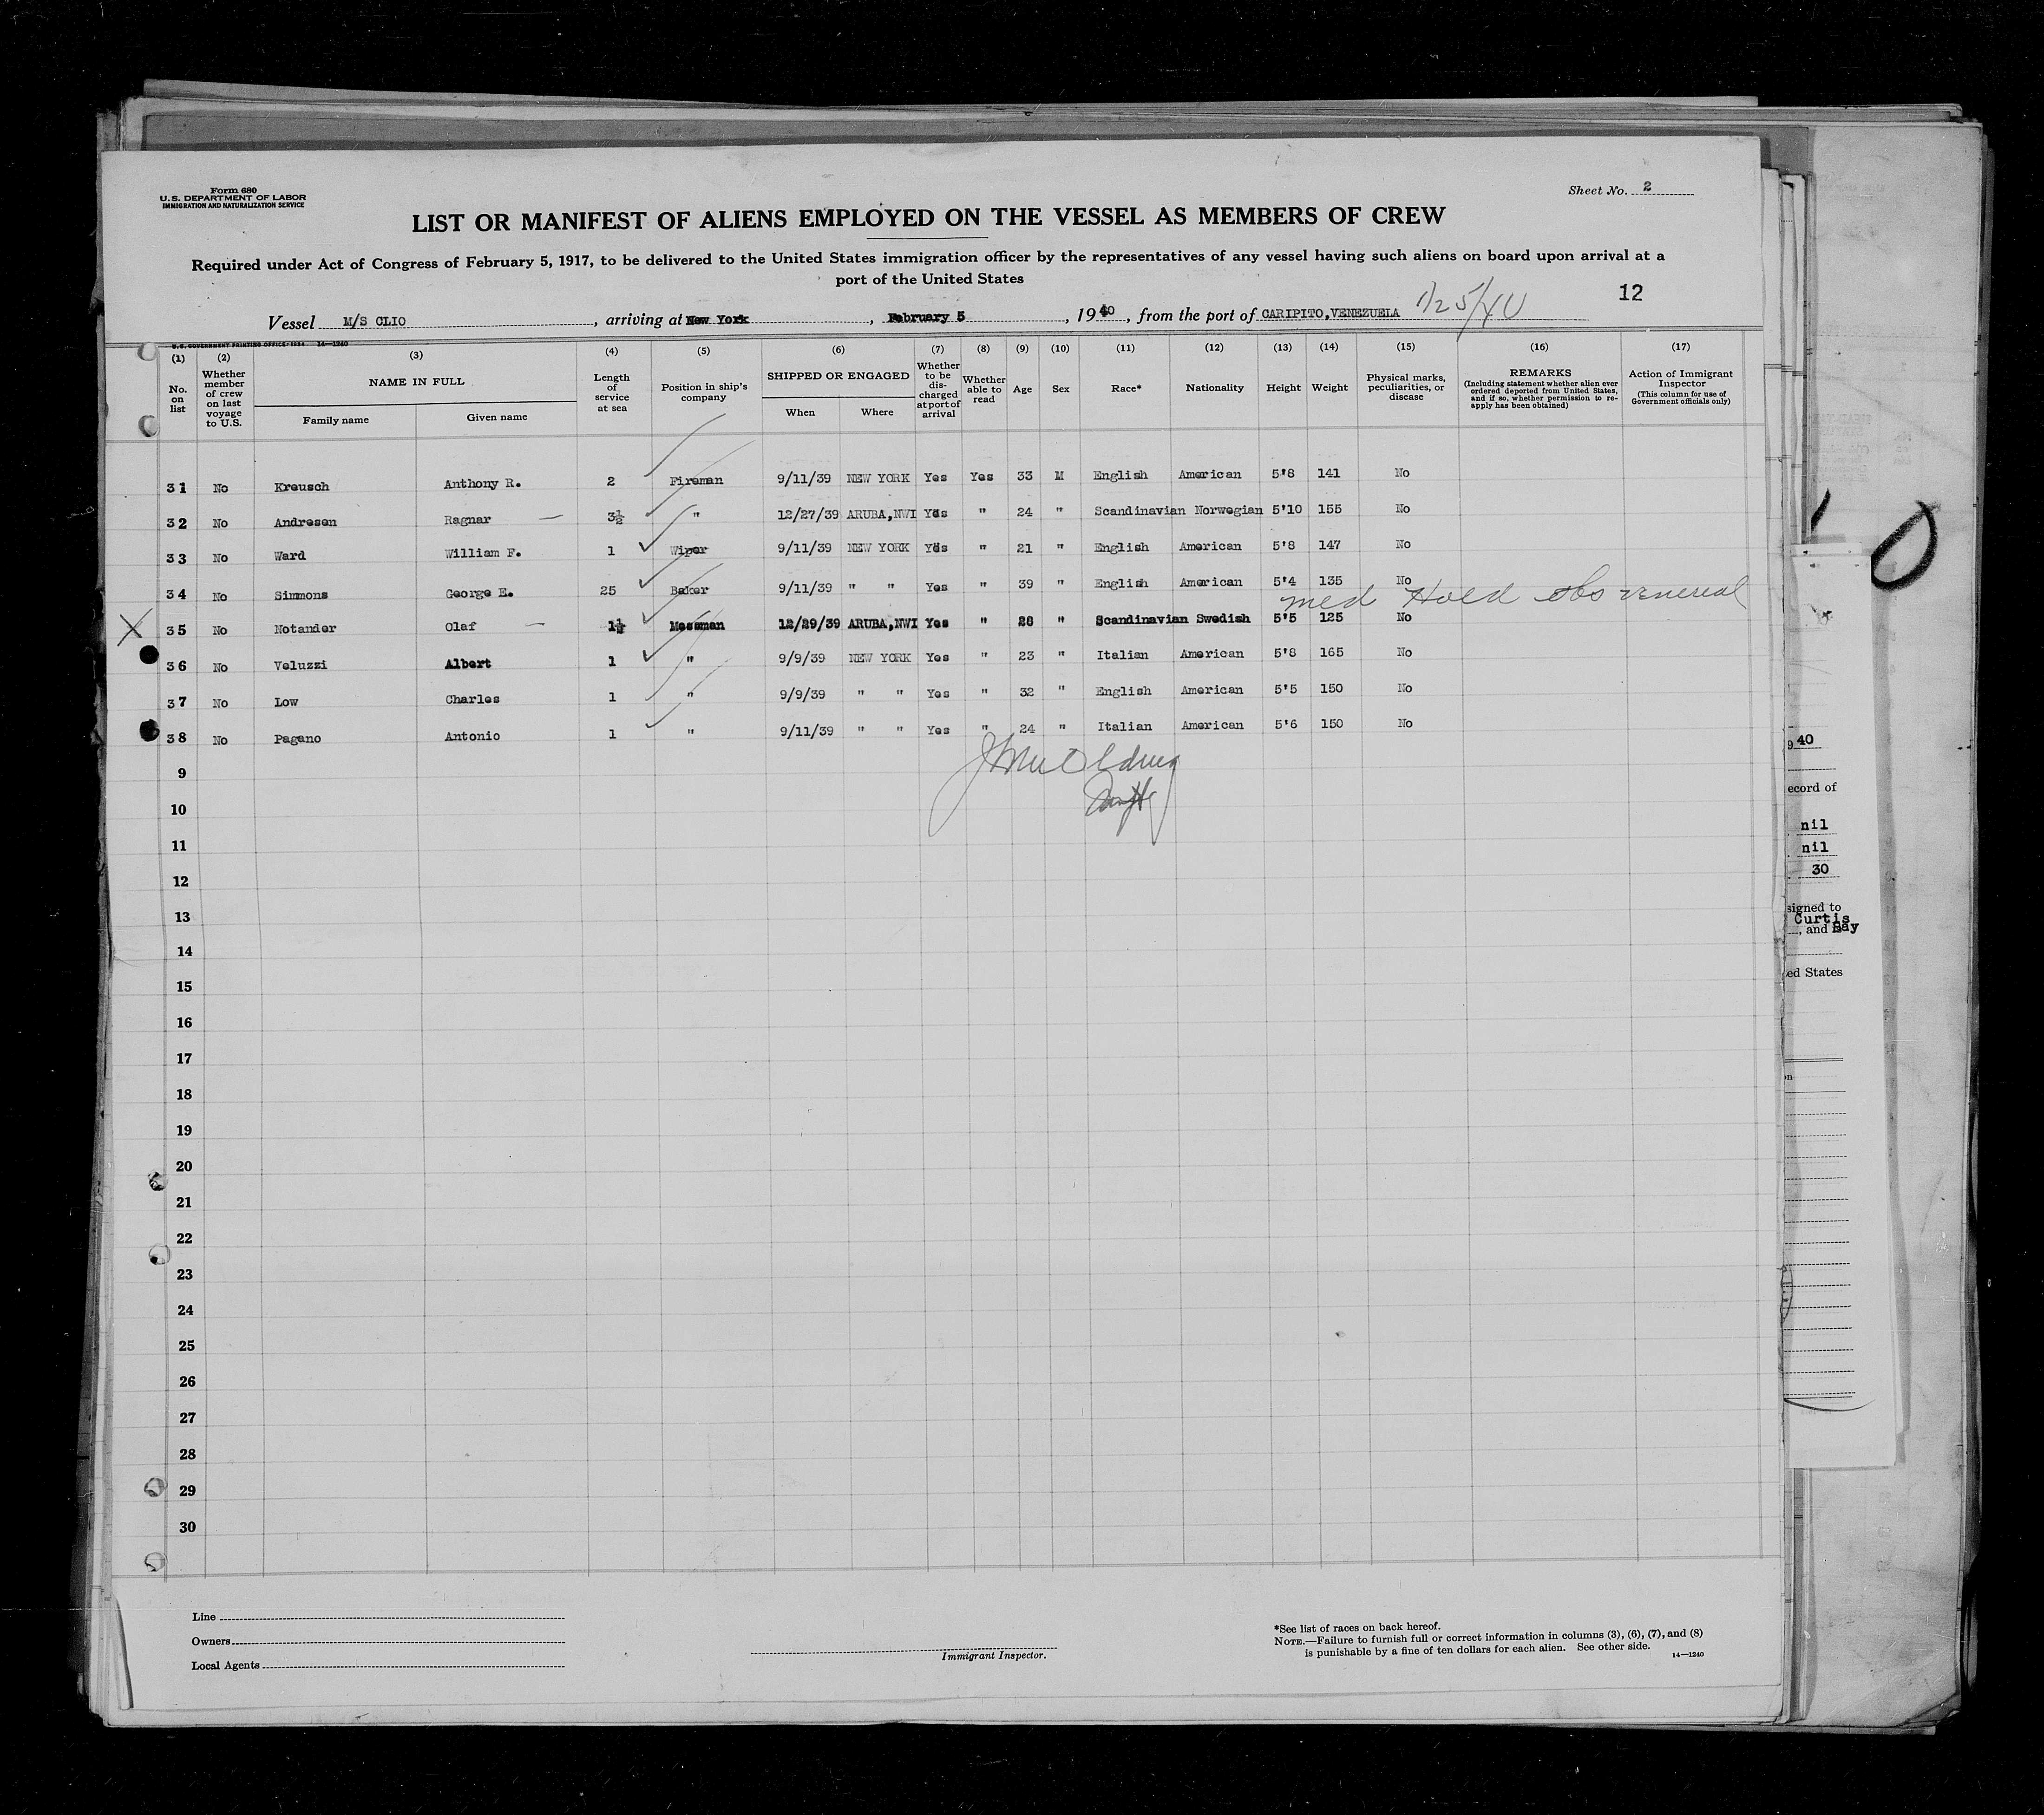 Form 680
U.S. DEPARTMENT OF LABOR
IMMIGRATION AND NATURALIZATION SERVICE
Sheet No. 2
LIST OR MANIFEST OF ALIENS EMPLOYED ON THE VESSEL AS MEMBERS OF CREW
Required under Act of Congress of February 5, 1917, to be delivered to the United States immigration officer by the representatives of any vessel having such aliens on board upon arrival at a
port of the United States
12
Vessel M/S CLIO, arriving at New York, February 5, 1940, from the port of CARIPITO,VENEZUELA 1/25/40
U.S. GOVERNMENT PRINTING OFFICE: 1934 14—1240
(1) (2) (3) (4) (5) (6) (7) (8) (9) (10) (11) (12) (13) (14) (15) (16) (17)
No. on list Whether member of crew on last voyage to U.S. NAME IN FULL Family name Given name Length of service at sea Position in ship's company SHIPPED OR ENGAGED When Where Whether to be discharged at port of arrival Whether able to read Age Sex Race* Nationality Height Weight Physical marks, peculiarities, or disease REMARKS (Including statement whether alien ever ordered deported from United States, and if so, whether permission to reapply has been obtained) Action of Immigrant Inspector (This column for use of Government officials only)
31 No Kreusch Anthony R. 2 Fireman 9/11/39 NEW YORK Yes Yes 33 M English American 5'8 141 No
32 No Andresen Ragnar — 3½ " 12/27/39 ARUBA,NWI Yes " 24 " Scandinavian Norwegian 5'10 155 No
33 No Ward William F. 1 Wiper 9/11/39 NEW YORK Yes " 21 " English American 5'8 147 No
34 No Simmons George E. 25 Baker 9/11/39 " " Yes " 39 " English American 5'4 135 No
med Hold obs venereal
X 35 No Notander Olaf — 1½ Messman 12/29/39 ARUBA,NWI Yes " 28 " Scandinavian Swedish 5'5 125 No
36 No Veluzzi Albert 1 " 9/9/39 NEW YORK Yes " 23 " Italian American 5'8 165 No
37 No Low Charles 1 " 9/9/39 " " Yes " 32 " English American 5'5 150 No
38 No Pagano Antonio 1 " 9/11/39 " " Yes " 24 " Italian American 5'6 150 No
9
10
11
12
13
14
15
16
17
18
19
20
21
22
23
24
25
26
27
28
29
30
Line
Owners
Local Agents
Immigrant Inspector.
*See list of races on back hereof.
NOTE.—Failure to furnish full or correct information in columns (3), (6), (7), and (8)
is punishable by a fine of ten dollars for each alien. See other side.
14—1240
40
ecord of
nil
nil
30
signed to
Curtis
, and Bay
ed States